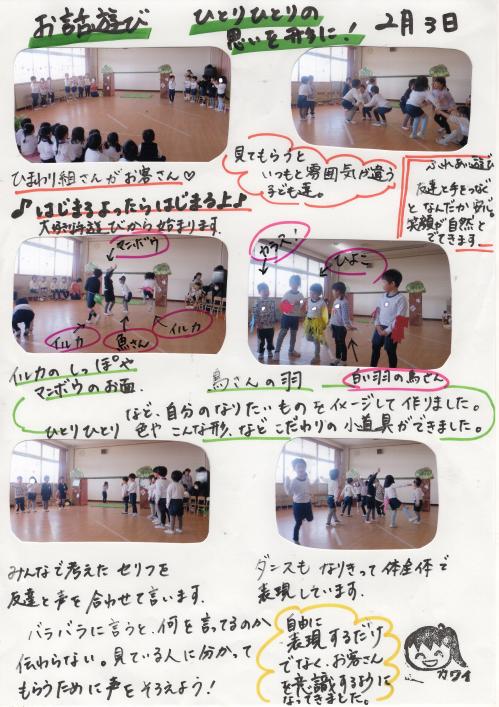 お話遊び ひとりひとりの
思いを形に！ 2月3日
ひまわり組さんがお客さん♡
見てもらうと
いつもと雰囲気が違う
子ども達。
ふれあい遊び
友達と手をつなぐ
となんだか
笑顔が自然と
でてきます
♪はじまるよったらはじまるよ♪
大好きな手遊びから始まります。
マンボウ
イルカ
魚さん
イルカ
カラス！
ひよこ
イルカのしっぽや
マンボウのお面、
鳥さんの羽
白い羽の鳥さん
など、自分のなりたいものをイメージして作りました。
ひとりひとり 色や こんな形、など こだわりの小道具ができました。
みんなで考えた セリフを
友達と声を合わせて言います。
バラバラに言うと、何を言ってるのか
伝わらない。見ている人に分かって
もらうために声をそろえよう！
ダンスも なりきって 体全体で
表現しています。
自由に
表現するだけ
でなく、お客さん
を意識するように
なってきました。
カワイ